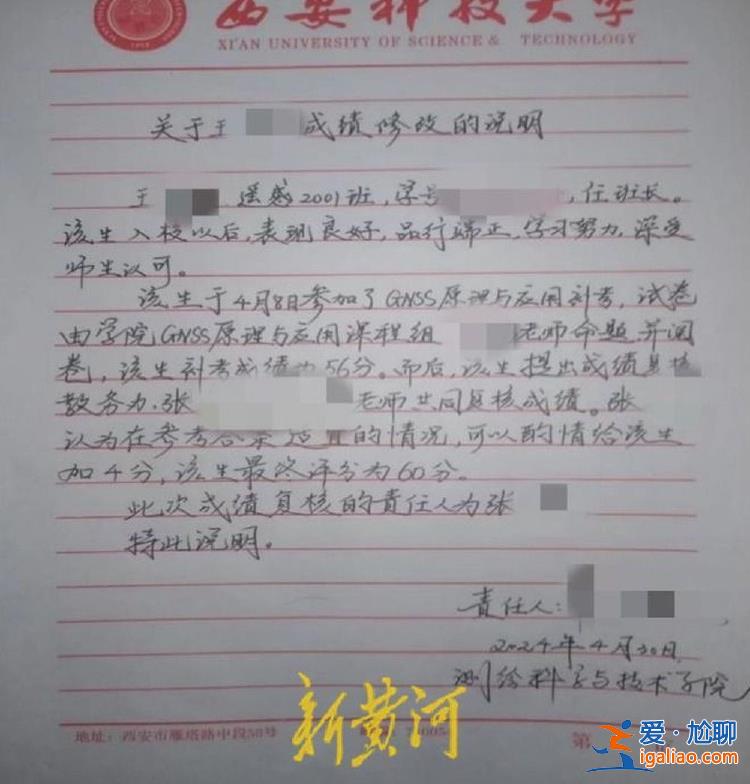 西安科技大学
XI'AN UNIVERSITY OF SCIENCE & TECHNOLOGY
关于王 成绩修改的说明
王 遥感2001班，学号 ，任班长。
该生入校以后，表现良好，品行端正，学习努力，深受
师生认可。
该生于4月8日参加了GNSS原理与应用补考，试卷
由学院GNSS原理与应用课程组 老师命题并阅
卷，该生补考成绩为56分。而后，该生提出成绩复核
教务办张 老师共同复核成绩。张
认为在参考答案适宜的情况，可以酌情给该生
加4分，该生最终评分为60分。
此次成绩复核的责任人为张
特此说明。
责任人：
2024年4月30日
测绘科学与技术学院
地址：西安市雁塔路中段58号 第
新黄河
爱·尴聊
igaliao.com